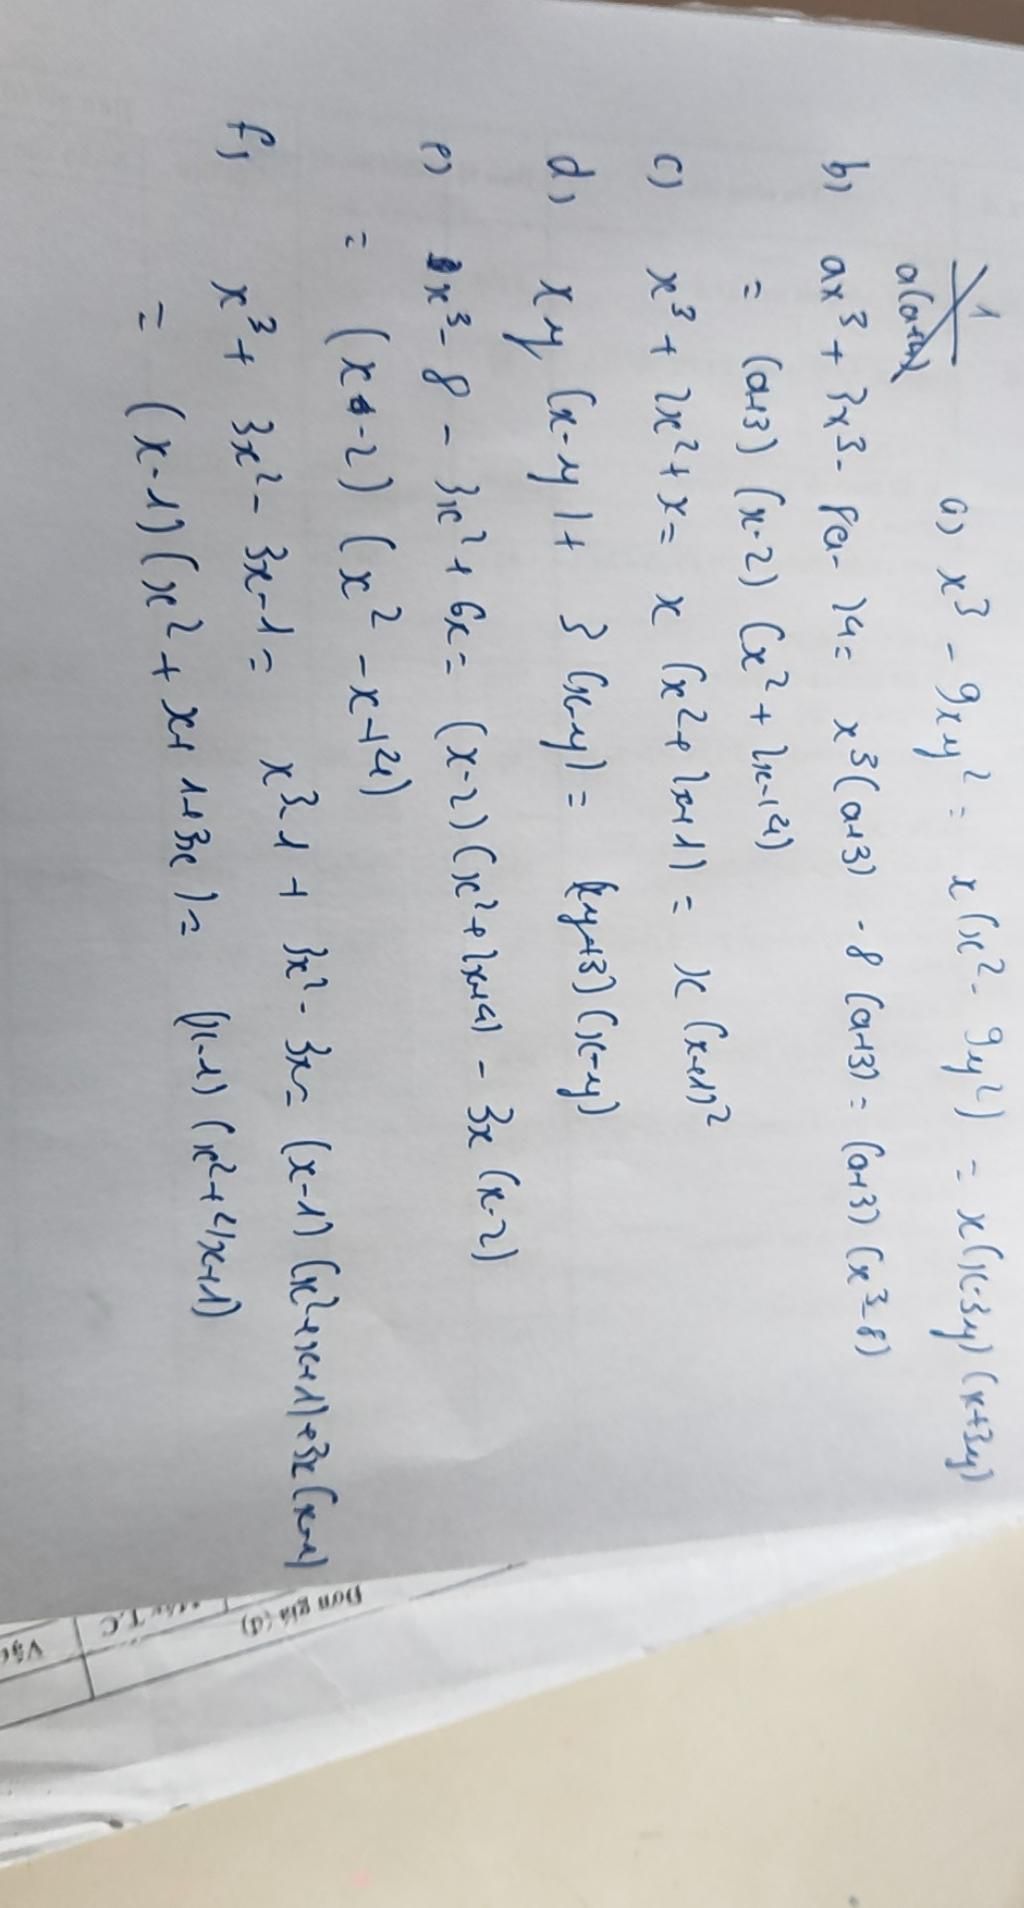 1
a) x³ - 9xy² = x(x² - 9y²) = x(x-3y)(x+3y)
b) ax³ + 3x³ - 8a - 24 = x³(a+3) - 8(a+3) = (a+3)(x³-8)
= (a+3)(x-2)(x²+2x+4)
c) x³ + 2x² + x = x(x²+2x+1) = x(x+1)²
d) xy(x-y) + 3(x-y) = (xy+3)(x-y)
e) x³ - 8 - 3x² + 6x = (x-2)(x²+2x+4) - 3x(x-2)
= (x-2)(x² - x+4)
f) x³ + 3x² - 3x - 1 = x³-1 + 3x² - 3x = (x-1)(x²+x+1)+3x(x-1)
= (x-1)(x² + x + 1 + 3x) = (x-1)(x²+4x+1)
Đơn giá (đ)